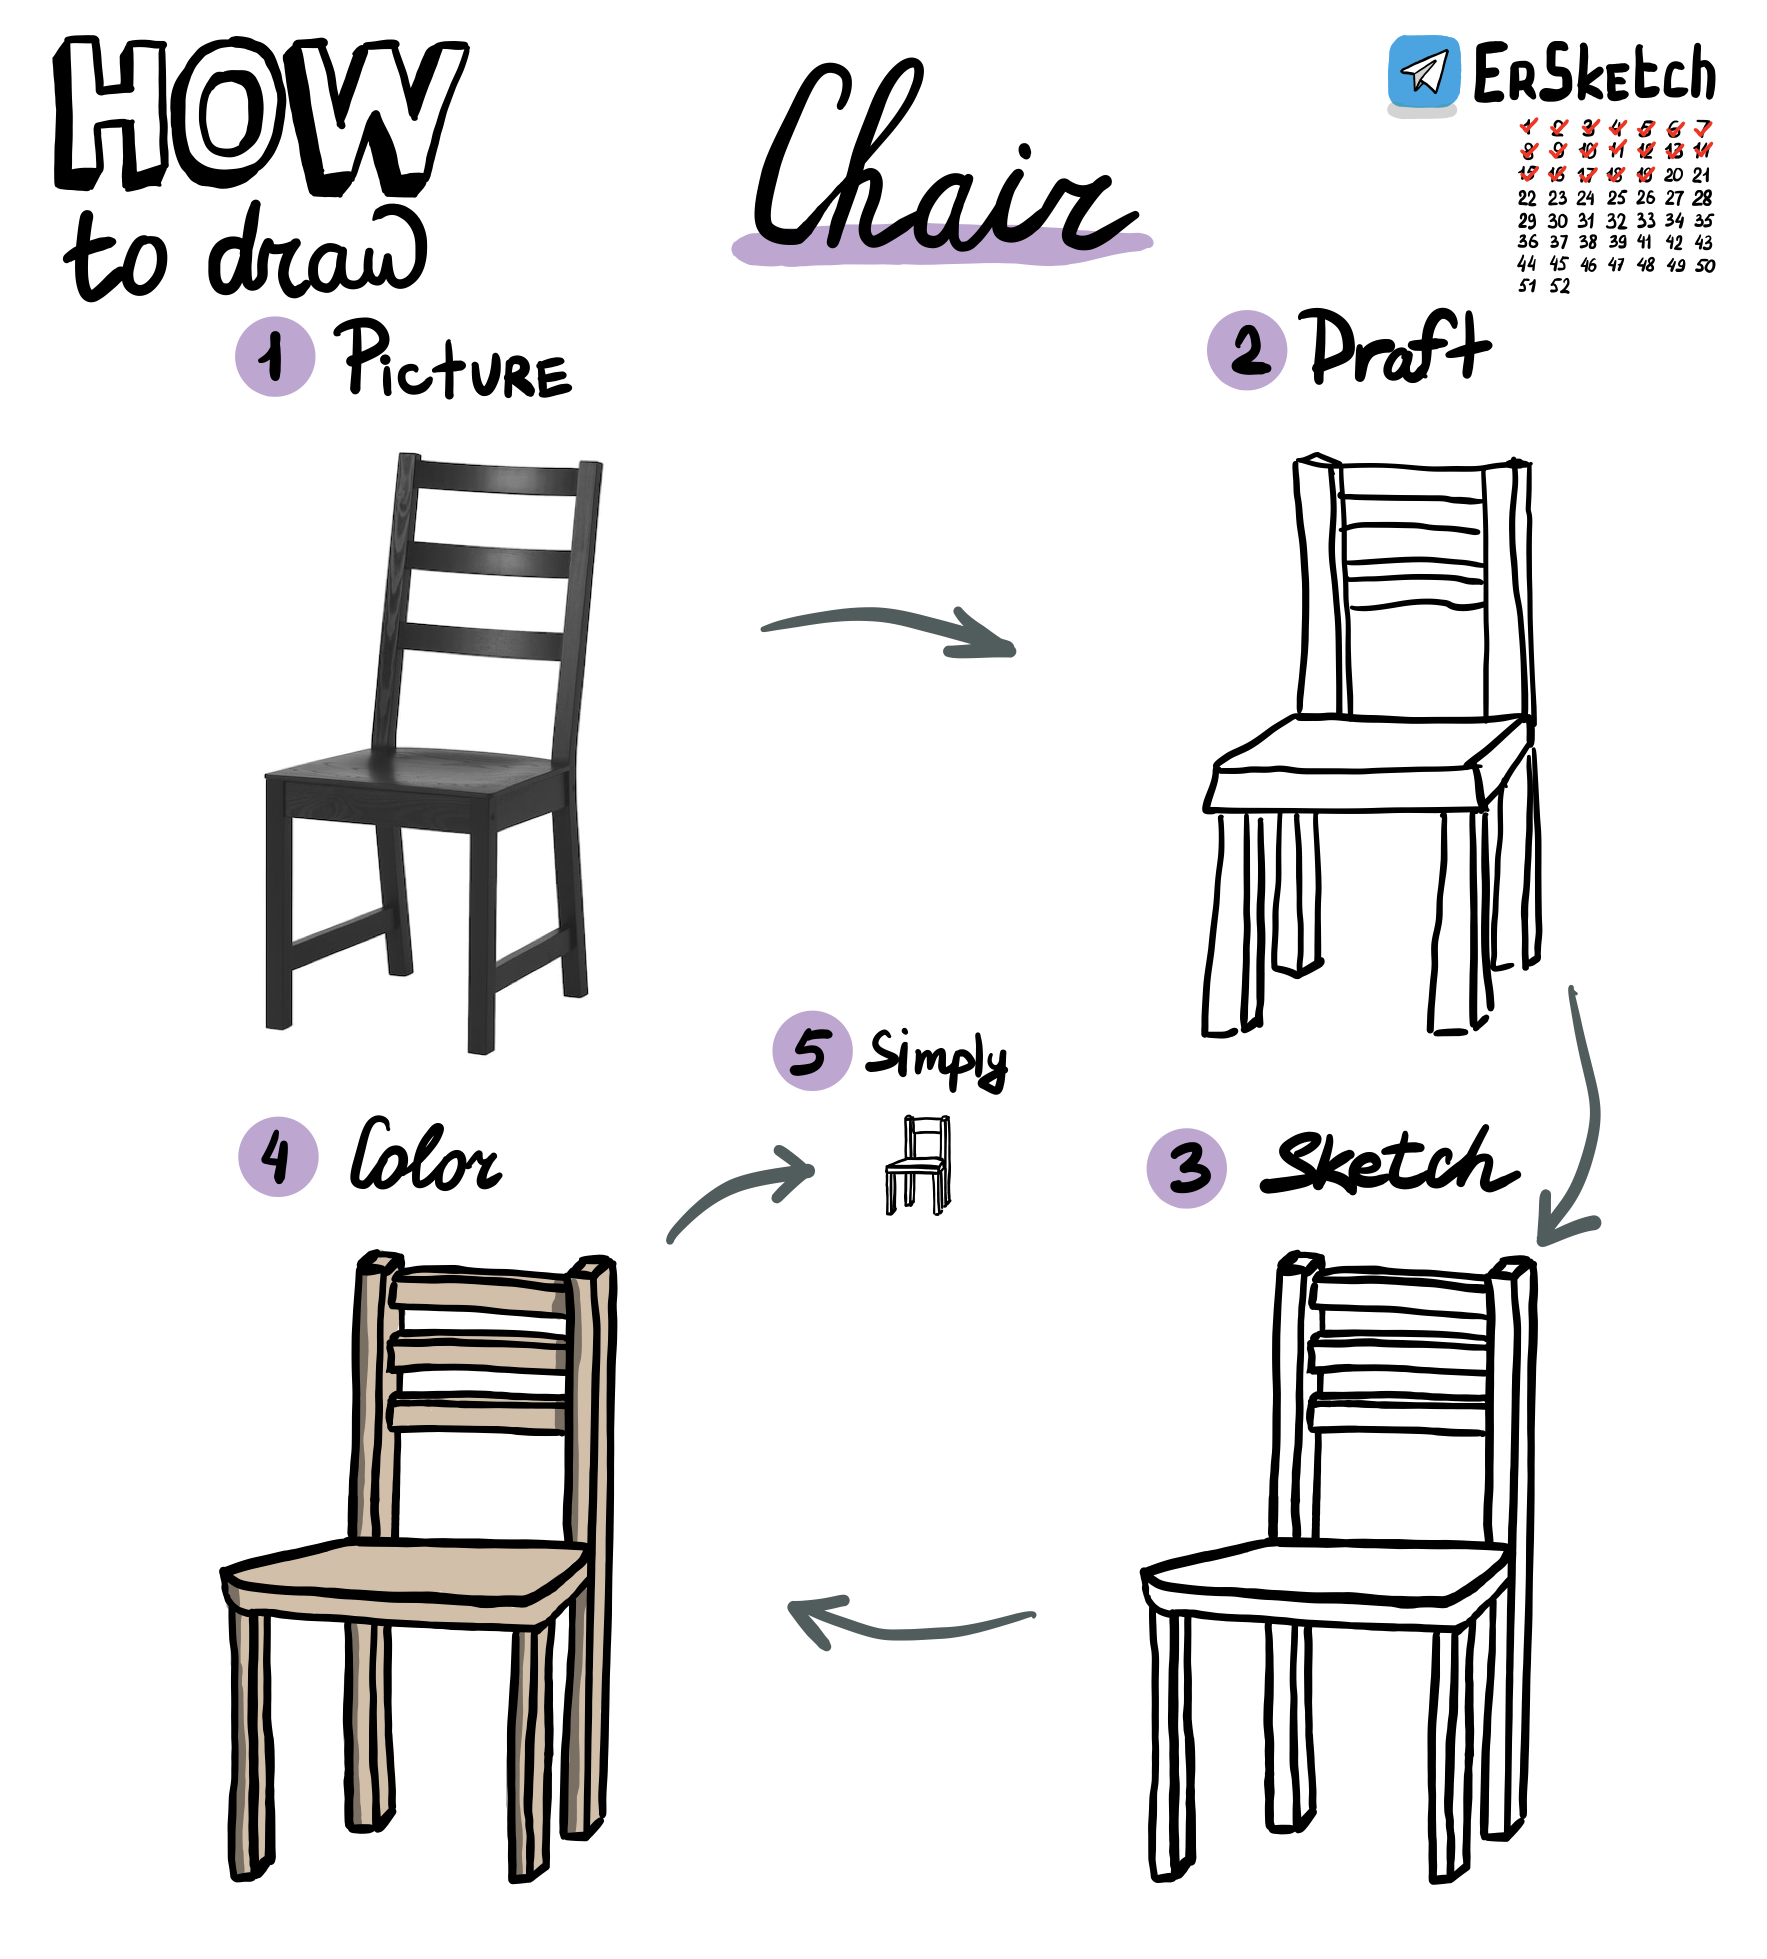 HOW
to draw
Chair
ErSketch
1 2 3 4 5 6 7
8 9 10 11 12 13 14
15 16 17 18 19 20 21
22 23 24 25 26 27 28
29 30 31 32 33 34 35
36 37 38 39 41 42 43
44 45 46 47 48 49 50
51 52
1 Picture
2 Draft
5 Simply
4 Color
3 Sketch